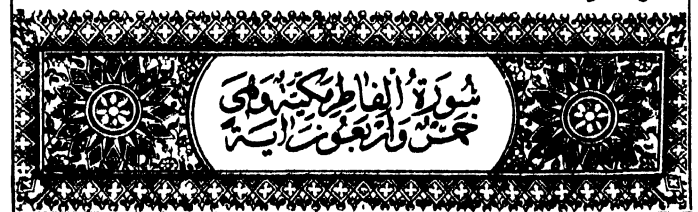 سُورَةُ الْفَاطِرِ مَكِّيَّةٌ وَهِيَ
خَمْسٌ وَأَرْبَعُونَ آيَةً